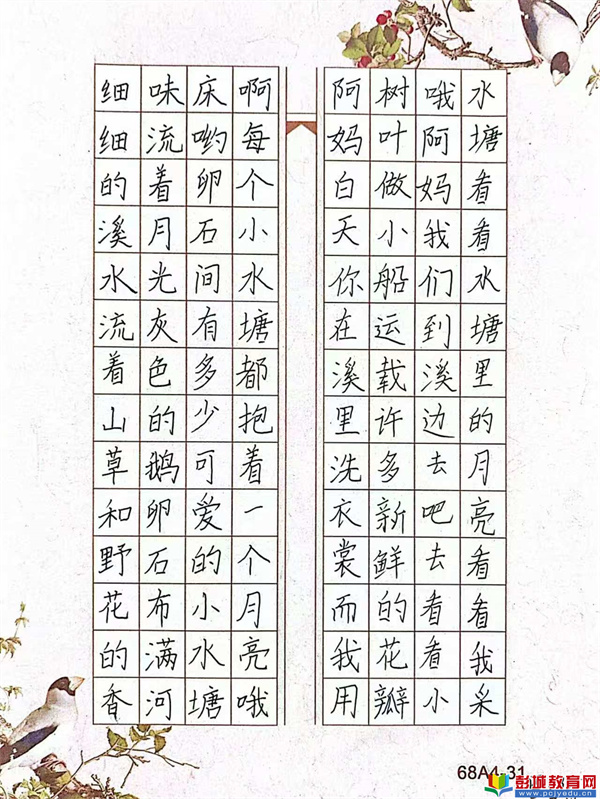 细细的溪水流着山草和野花的香
味流着月光灰色的鹅卵石布满河
床哟卵石间有多少可爱的小水塘
啊每个小水塘都抱着一个月亮哦
阿妈白天你在溪里洗衣裳而我用
树叶做小船运载许多新鲜的花瓣
哦阿妈我们到溪边去吧去看看小
水塘看看水塘里的月亮看看我采
68A4-31
彭城教育网
www.pcjyedu.cn